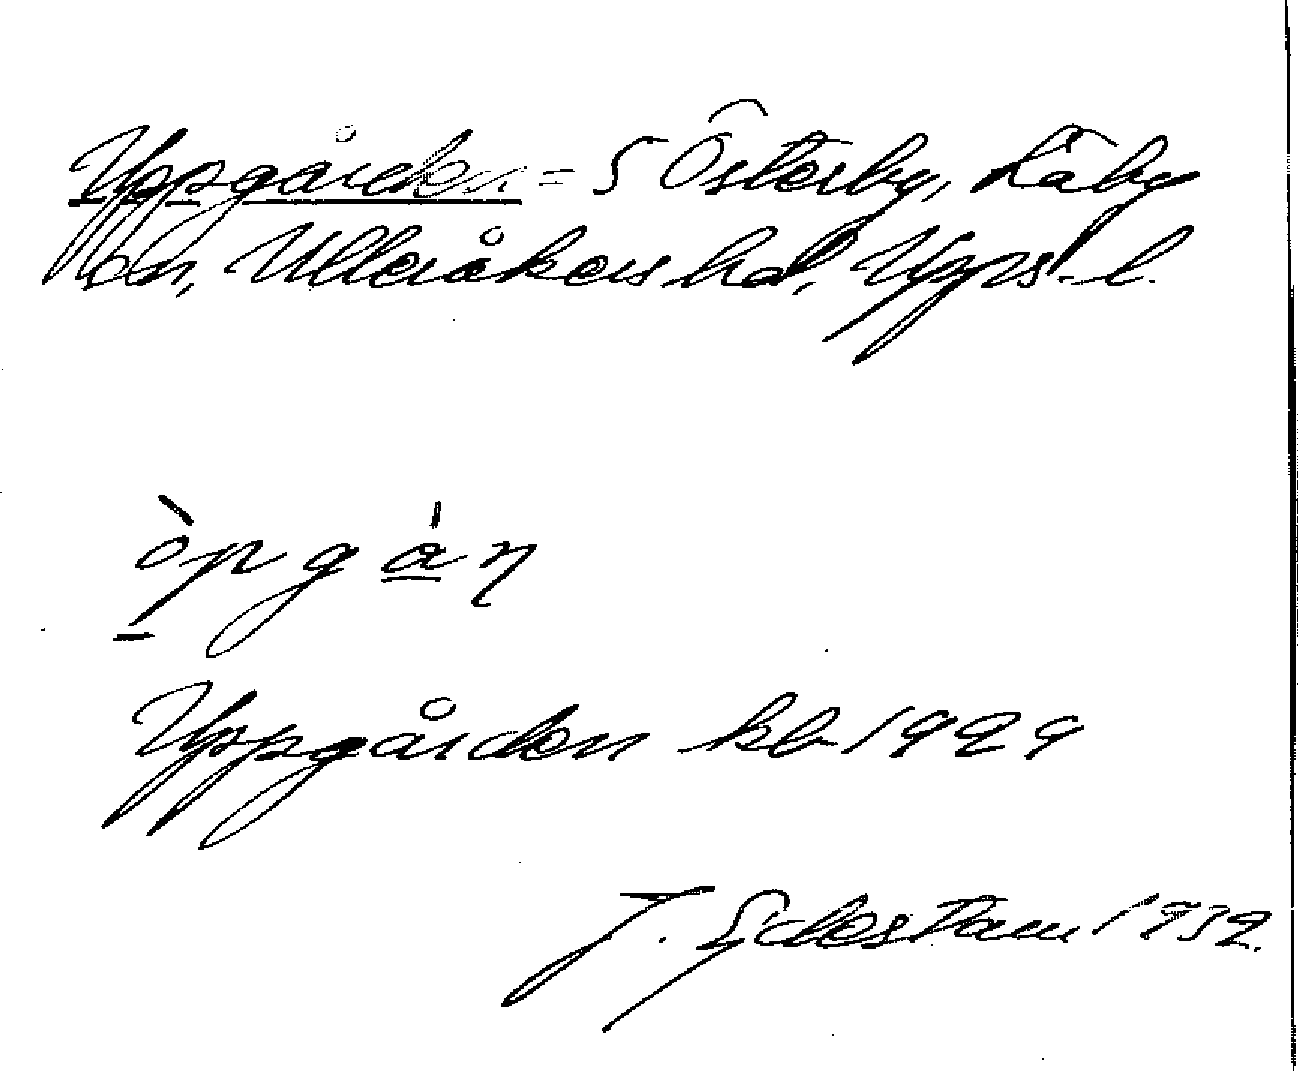 Uppgården = 5 Österby, Läby
sn, Ulleråkers hd, Upps. l.
òpgán
Uppgården kb 1929
J. Edestam 1932.